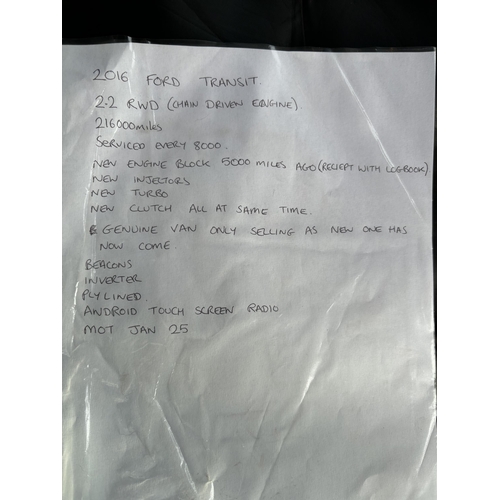 2016 FORD TRANSIT.
2.2 RWD (CHAIN DRIVEN ENGINE)
216000miles
SERVICED EVERY 8000.
NEW ENGINE BLOCK 5000 MILES AGO (RECIEPT WITH LOGBOOK)
NEW INJECTORS
NEW TURBO
NEW CLUTCH ALL AT SAME TIME.
& GENUINE VAN ONLY SELLING AS NEW ONE HAS
NOW COME.
BEACONS
INVERTER
PLYLINED.
ANDROID TOUCH SCREEN RADIO
MOT JAN 25